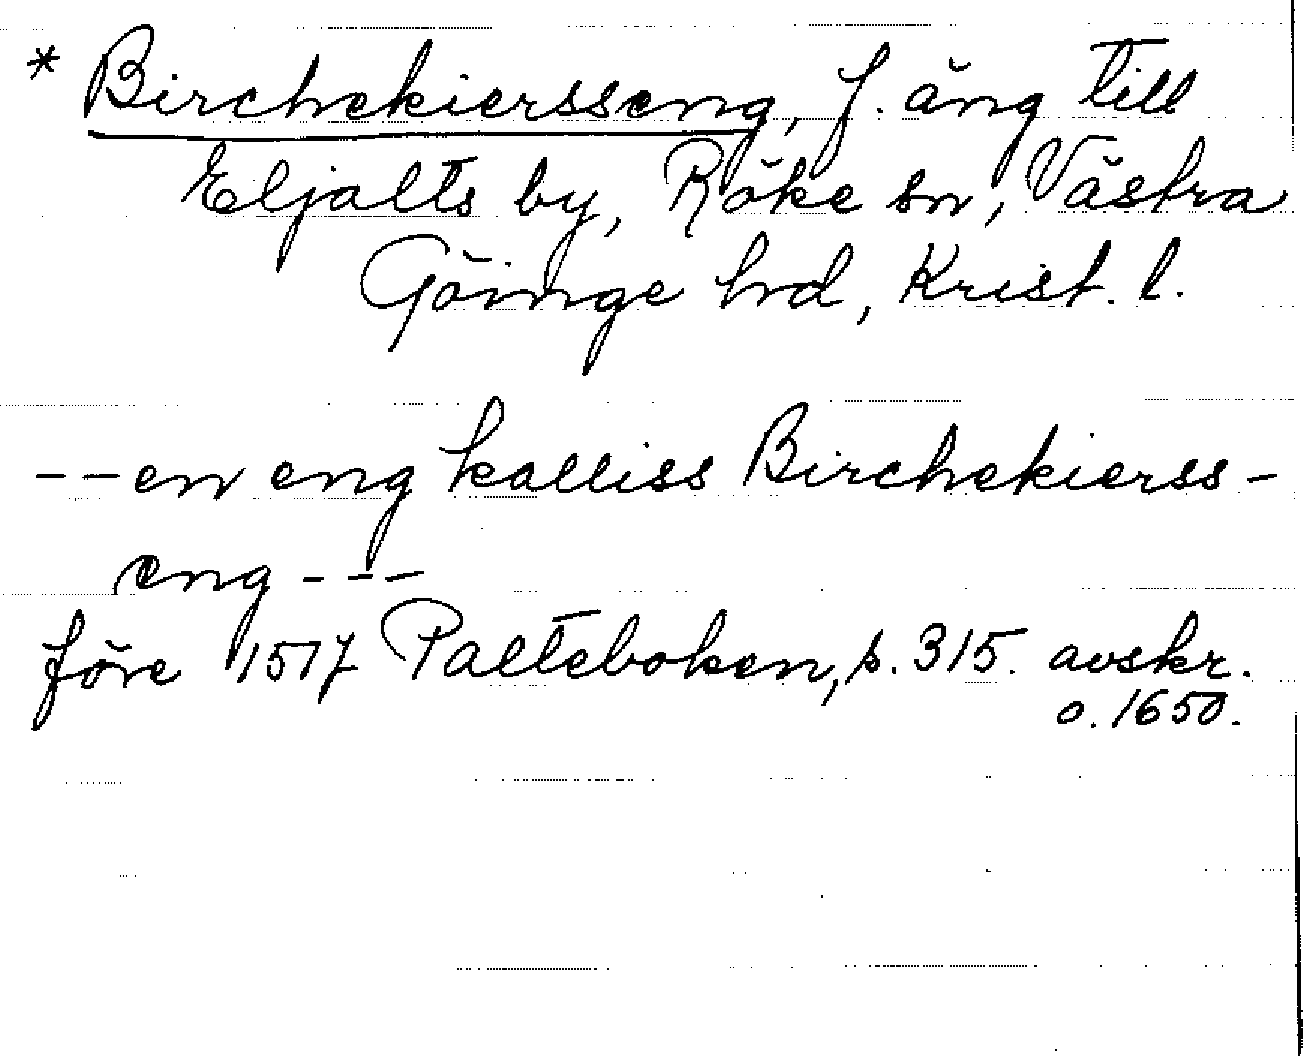 * Birchekiersseng, f. äng till
Eljalts by, Röke sn, Västra
Göinge hrd, Krist. l.
--en eng kalliss Birchekierss-
eng ---
före 1517 Palteboken, s. 315. avskr.
o. 1650.